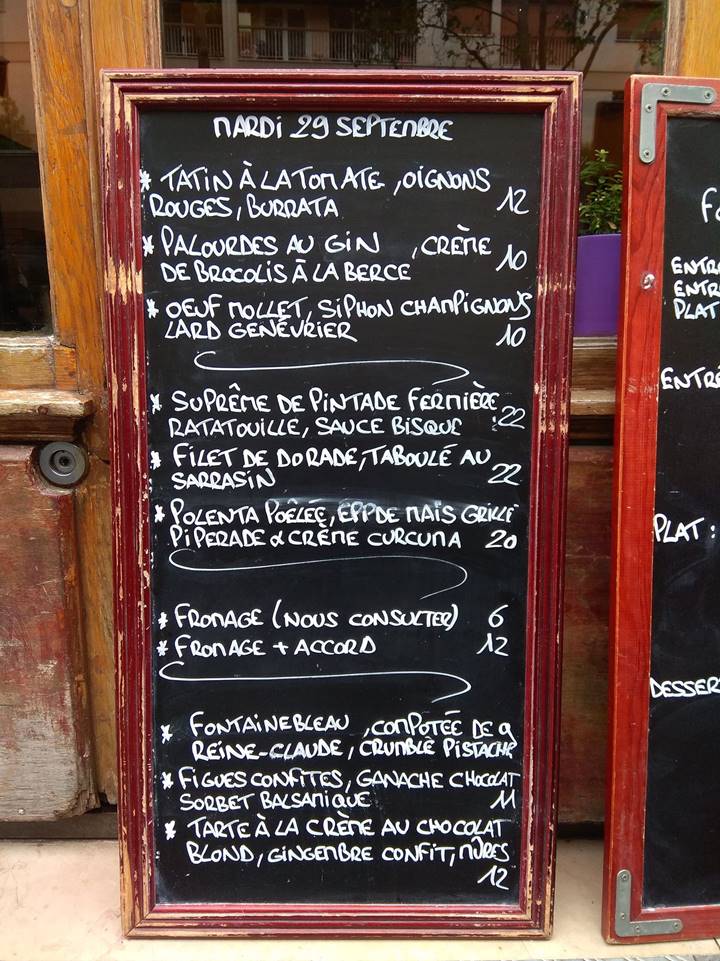 MARDI 29 SEPTEMBRE
* TATIN À LA TOMATE , OIGNONS
ROUGES, BURRATA 12
* PALOURDES AU GIN , CRÈME
DE BROCOLIS À LA BERCE 10
* OEUF MOLLET, SIPHON CHAMPIGNONS
LARD GENÉVRIER 10
* SUPRÊME DE PINTADE FERMIÈRE
RATATOUILLE, SAUCE BISQUE 22
* FILET DE DORADE, TABOULÉ AU
SARRASIN 22
* POLENTA POÊLÉE, EPP DE MAÏS GRILLÉ
PIPERADE & CRÈME CURCUMA 20
* FROMAGE (NOUS CONSULTER) 6
* FROMAGE + ACCORD 12
* FONTAINEBLEAU , COMPOTÉE DE 9
REINE-CLAUDE, CRUMBLE PISTACHE
* FIGUES CONFITES, GANACHE CHOCOLAT
SORBET BALSAMIQUE 11
* TARTE À LA CRÈME AU CHOCOLAT
BLOND, GINGEMBRE CONFIT, MÛRES
12
FO
ENTR
ENTR
PLAT
ENTRÉ
PLAT :
DESSER